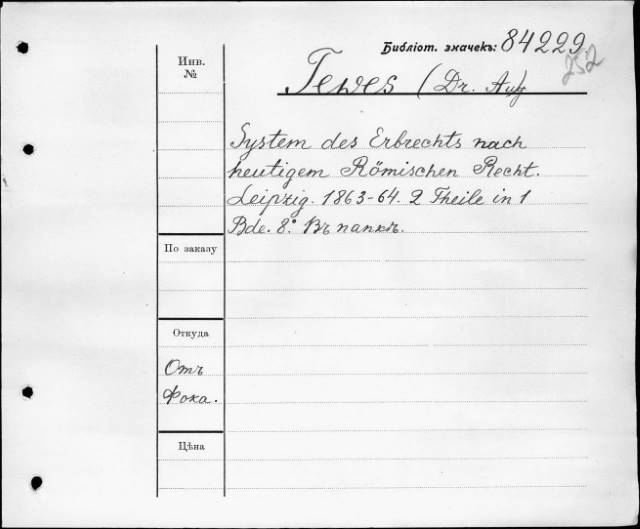 Библіот. значекъ: 84229
252
Инв.
№
Tewes (Dr. Aug
System des Erbrechts nach
heutigem Römischen Recht.
Leipzig. 1863-64. 2 Theile in 1
Bde. 8°. Въ папкѣ.
По заказу
Откуда
Отъ
Фока.
Цѣна